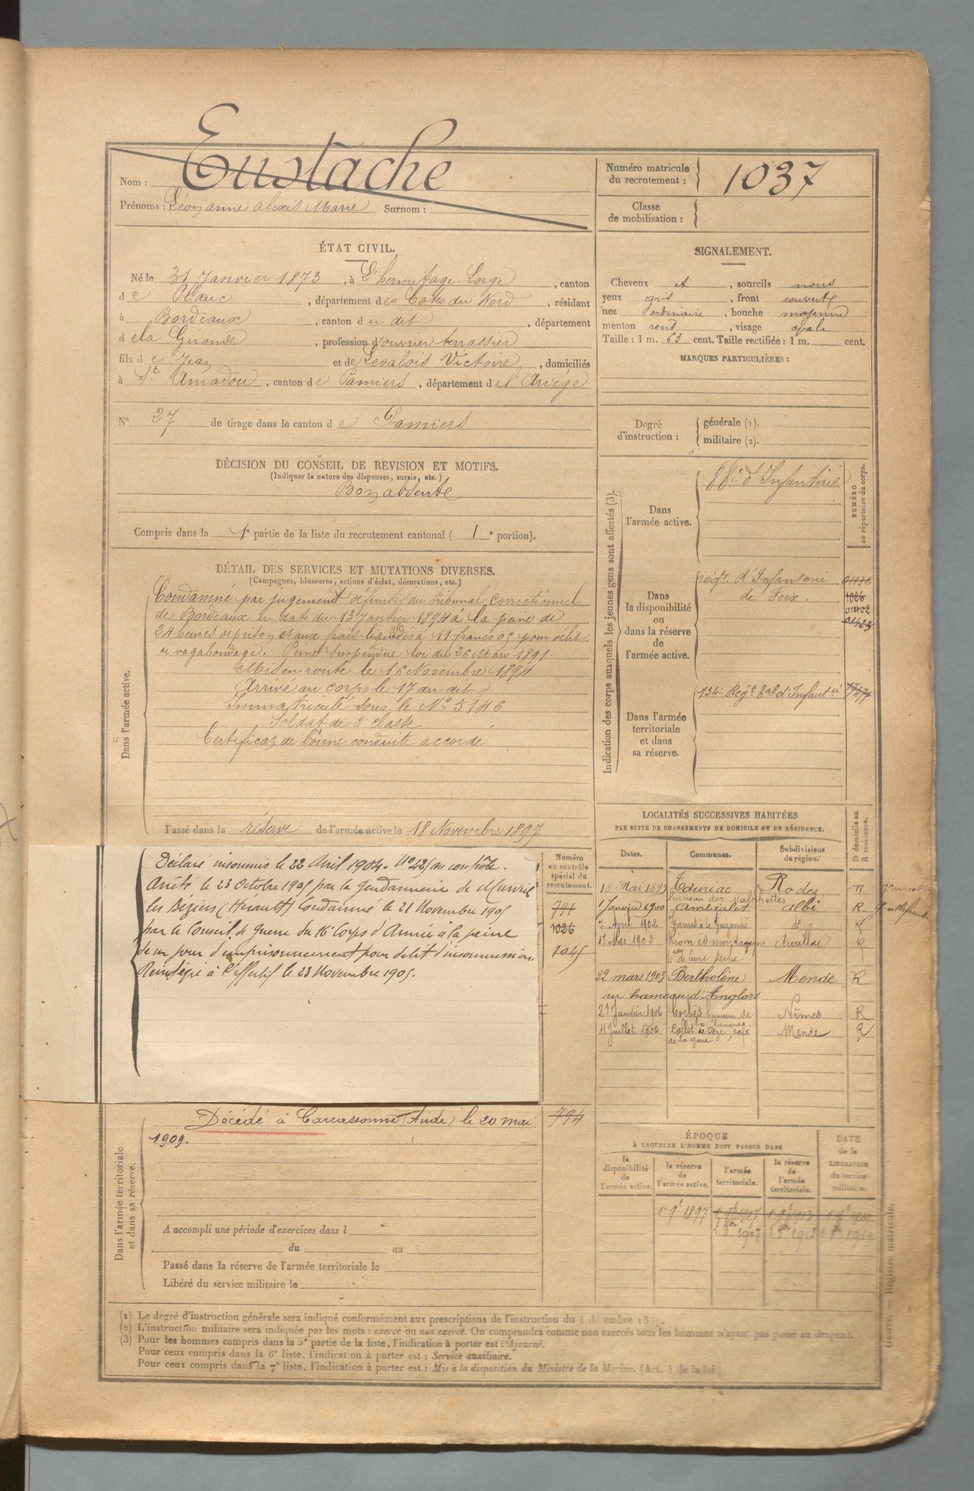 Nom : Eustache
Prénoms : alexis Marie Surnom :
Numéro matricule
du recrutement : 1037
Classe
de mobilisation :
ÉTAT CIVIL.
Né le 31 Janvier 1873, à L'hermitage-Lorge, canton
de, département des Cotes du Nord, résidant
à Bordeaux, canton du dit, département
de la Gironde, profession d'ouvrier terrassier
fils de Jean et de Levalois Victoire, domiciliés
à St Amadou, canton de Pamiers, département de l'Ariège
N° 37 de tirage dans le canton de Pamiers
DÉCISION DU CONSEIL DE REVISION ET MOTIFS.
(Indiquer la nature des dispenses, sursis, etc.)
Bon absent
Compris dans la 1e partie de la liste du recrutement cantonal ( 1e portion).
SIGNALEMENT.
Cheveux et, sourcils noirs
yeux gris, front couvert
nez ordinaire, bouche moyenne
menton rond, visage ovale
Taille : 1 m. 63 cent. Taille rectifiée : 1 m. cent.
MARQUES PARTICULIÈRES :
Degré
d'instruction :
générale (1).
militaire (2).
DÉTAIL DES SERVICES ET MUTATIONS DIVERSES.
(Campagnes, blessures, actions d'éclat, décorations, etc.)
Dans l'armée active.
Condamné par jugement définitif du tribunal correctionnel
de Bordeaux en date du 13 Janvier 1894 à la peine de
24 heures de prison et aux frais liquidés à 11 francs 05 pour délit
de vagabondage. Peine suspendue loi du 26 Mars 1891.
Mis en route le 16 Novembre 1894
Arrivé au corps le 17 au dit
Immatriculé sous le N° 5146
Soldat de 2e classe
Certificat de bonne conduite accordé
Passé dans la réserve de l'armée active le 18 Novembre 1897
Déclaré insoumis le 22 Avril 1904. N° 28 du contrôle.
Arrêté le 23 Octobre 1905 par la gendarmerie de
les Béziers (Hérault) Condamné le 21 Novembre 1905
par le Conseil de Guerre du 16e Corps d'Armée à la peine
de un jour d'emprisonnement pour délit d'insoumission
Réintégré à l'effectif le 23 Novembre 1905.
Numéro
au contrôle
spécial du
recrutement.
791
1026
1045
794
Décédé à Carcassonne (Aude) le 20 mai
1909.
Dans l'armée territoriale
et dans sa réserve.
A accompli une période d'exercices dans l
du au
Passé dans la réserve de l'armée territoriale le
Libéré du service militaire le
Indication des corps auxquels les jeunes gens sont affectés (3).
NUMÉRO
au répertoire du corps.
Dans
l'armée active.
d'Infanterie
Dans
la disponibilité
ou
dans la réserve
de
l'armée active.
regt d'Infanterie
de Foix.
Dans l'armée
territoriale
et dans
sa réserve.
134e Regt tal d'Infanterie
LOCALITÉS SUCCESSIVES HABITÉES
PAR SUITE DE CHANGEMENTS DE DOMICILE OU DE RÉSIDENCE.
Dates. Communes. Subdivisions
de région. D domicile ou
R résidence.
Mai Tauriac Rodez R
1 Janvier 1900 Ambialet Albi R
Avril 1902 R
Mai 1903 Aurillac R
22 mars 1903 Bertholène Mende R
au hameau d'Anglars
21 Janvier 1906 Nîmes R
11 Juillet 1906 Collet de Dèze, café Mende R
de la gare
ÉPOQUE
A LAQUELLE L'HOMME DOIT PASSER DANS
la
disponibilité
de
l'armée active.
la réserve
de
l'armée active.
l'armée
territoriale.
la réserve
de
l'armée
territoriale.
DATE
de la
LIBÉRATION
du service
militaire.
(1) Le degré d'instruction générale sera indiqué conformément aux prescriptions de l'instruction du décembre
(2) L'instruction militaire sera indiquée par les mots : exercé ou non exercé. On comprendra comme non exercés tous les hommes n'ayant pas passé au drapeau.
(3) Pour les hommes compris dans la 5e partie de la liste, l'indication à porter est : Ajourné.
Pour ceux compris dans la 6e liste, l'indication à porter est : Service auxiliaire.
Pour ceux compris dans la 7e liste, l'indication à porter est : Mis à la disposition du Ministre de la Marine. (Art. 4 de la loi)